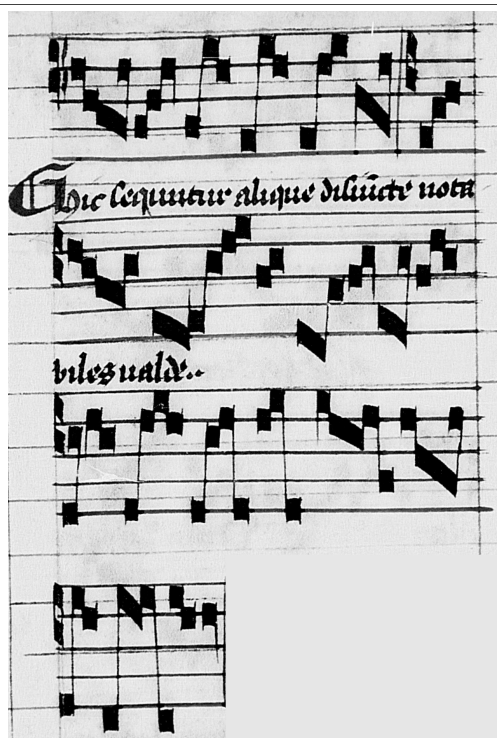 Hic sequntur alique disiūcte nota
biles ualde..